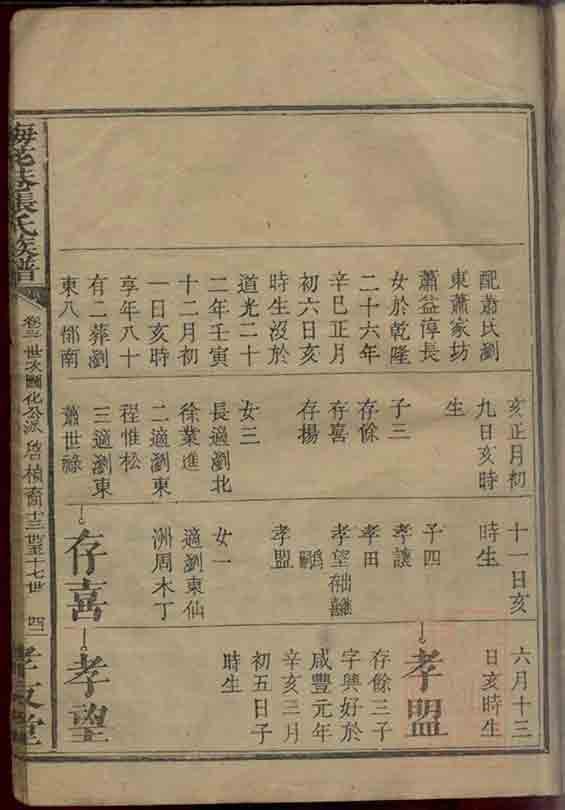 配蕭氏瀏
東蕭家坊
蕭益淳長
女於乾隆
二十六年
辛巳正月
初六日亥
時生沒於
道光二十
二年壬寅
十二月初
一日亥時
享年八十
有二葬瀏
東八都南
亥正月初
九日亥時
生
子三
存餘
存喜
存揚
女三
長適瀏北
徐業進
二適瀏東
程惟松
三適瀏東
蕭世祿
十一日亥
時生
子四
孝讓
孝田
孝望
孝盟
女一
適瀏東仙
洲周木丁
存喜
六月十三
日亥時生
孝盟
存餘三子
字興好於
咸豐元年
辛亥三月
初五日子
時生
孝望
梅花巷張氏族譜
世次圖化公派
啓楨裔十三世至十七世
四
孝友堂